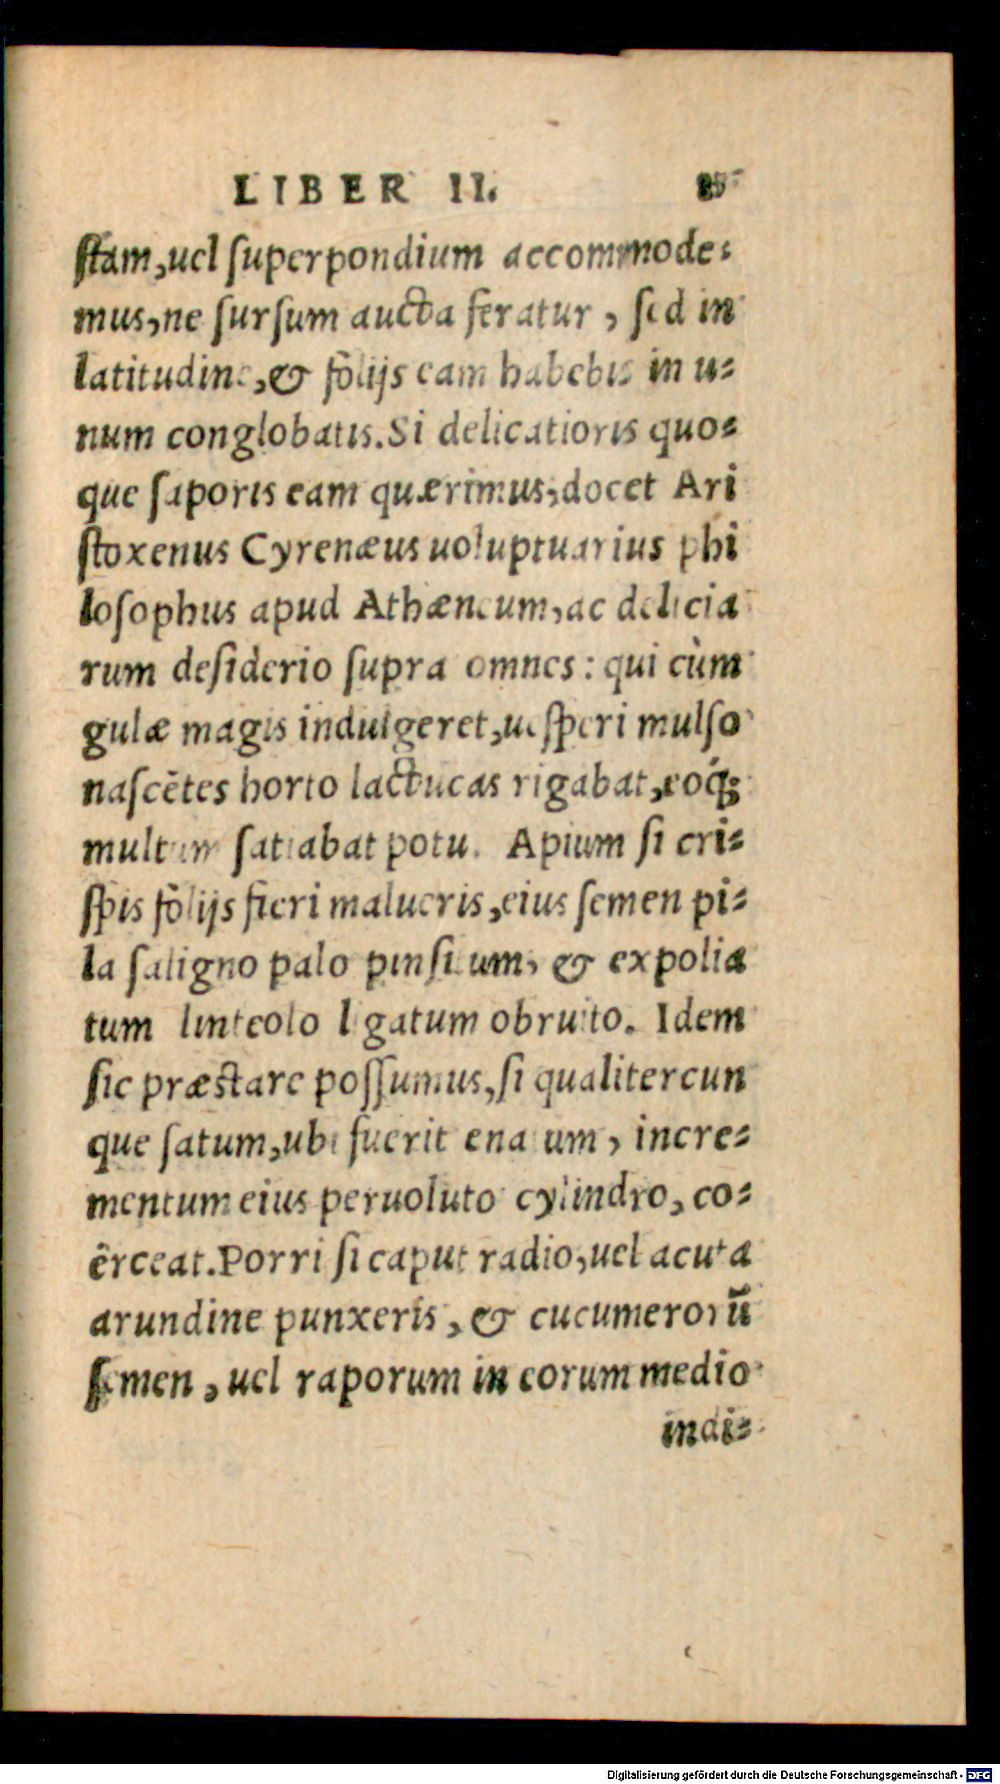 LIBER II. 85
ſtam,uel ſuperpondium accommode⸗
mus,ne ſurſum aucta feratur, ſed in
latitudine,& folijs eam habebis in u⸗
num conglobatis.Si delicatioris quo⸗
que ſaporis eam quærimus,docet Ari
ſtoxenus Cyrenæus uoluptuarius phi
loſophus apud Athæneum,ac delicia
rum deſiderio ſupra omnes: qui cùm
gulæ magis indulgeret,ueſperi mulſo
naſcētes horto lactucas rigabat,eoq́ꝫ
multum ſatiabat potu. Apium ſi cri⸗
ſpis folijs fieri malueris,eius ſemen pi⸗
la ſaligno palo pinſitum, & expolia
tum linteolo ligatum obruito. Idem
ſic præſtare poſſumus,ſi qualitercun
que ſatum,ubi fuerit enatum, incre⸗
mentum eius peruoluto cylindro, co⸗
ërceat.Porri ſi caput radio,uel acuta
arundine punxeris, & cucumerorū
ſemen, uel raporum in eorum medio
indi⸗
Digitalisierung gefördert durch die Deutsche Forschungsgemeinschaft - DFG